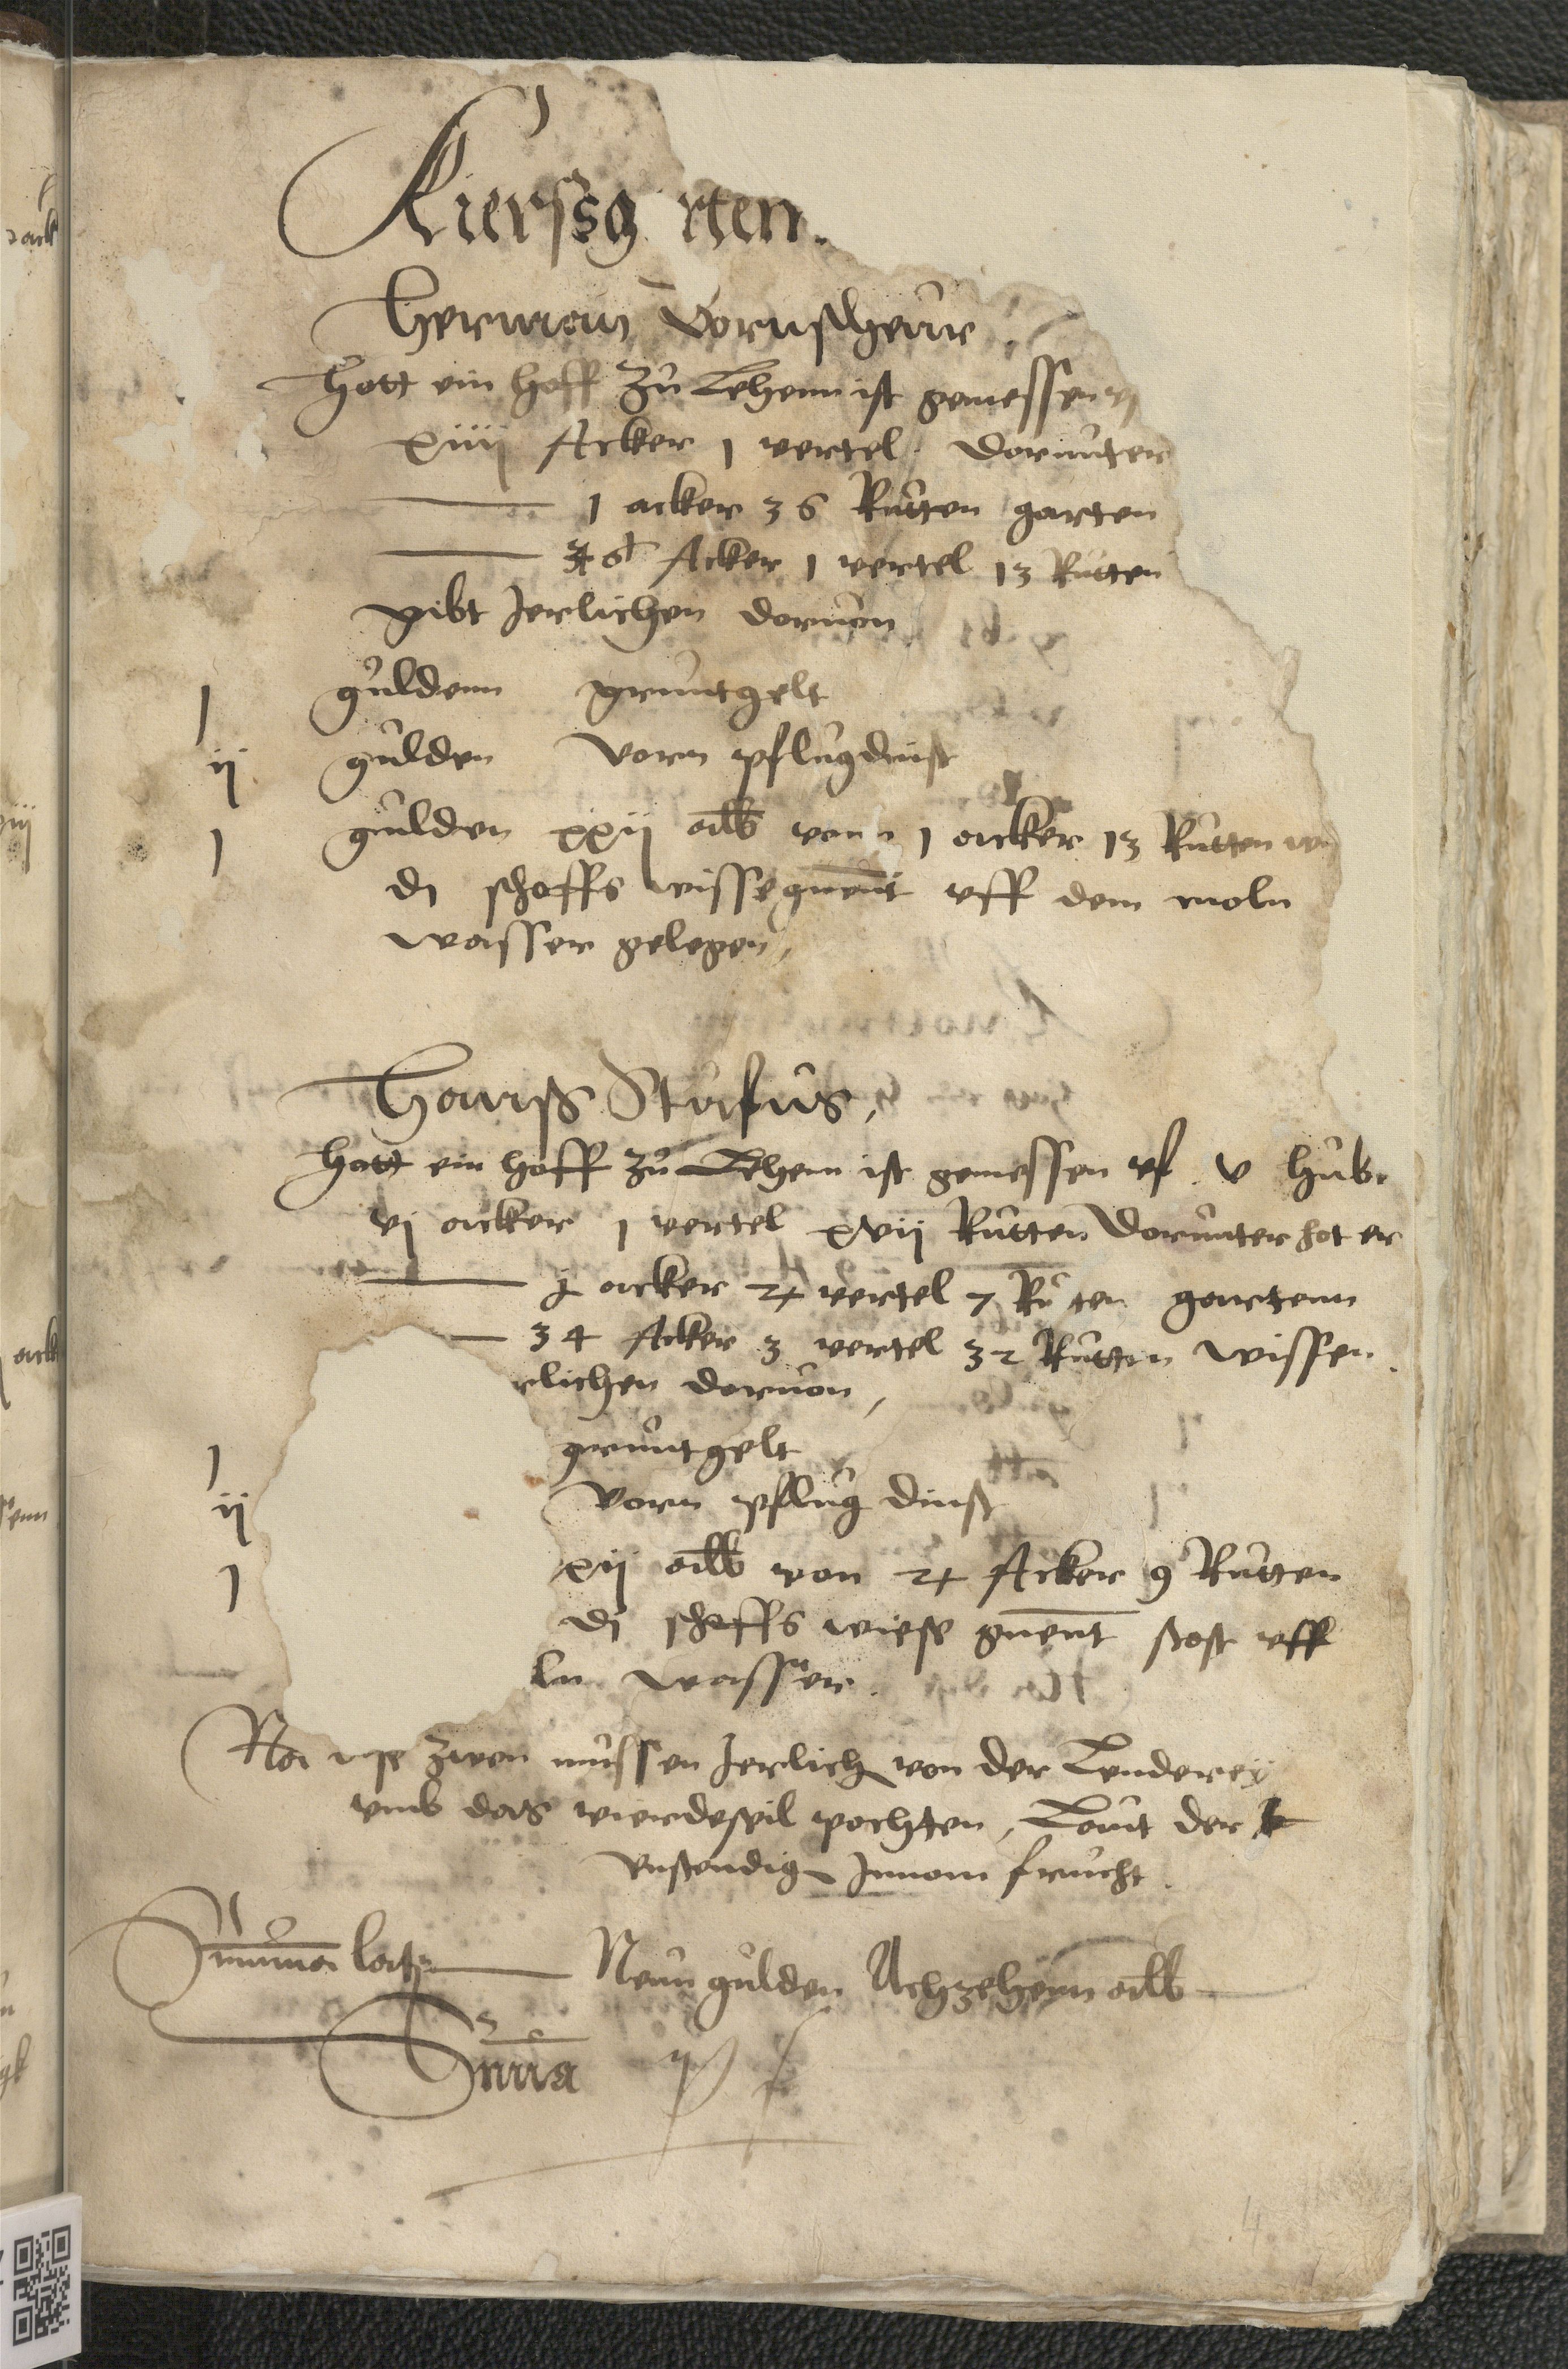 Kierssg rten.
Herman Dornscheure
Hatt ein hoff zu Lehenn ist gemessen
xiiij Acker j vertel. Dorunter
1 acker 36 Rutten garten
Acker 1 vertel 13 Rutten
gibt Jerlichen dorvon
j guldenn gruntgelt
ij gulden vorn pflugdinst
j gulden xxij alb von 1 acker 13 Rutten
di schaffs wisse gnent uff dem moln
wasser gelegen,
Hanß
Hatt ein hoff zu Lehenn ist gemessen uf v hube
vj acker j vertel xvij Rutten Dorunter hat er
acker 2 vertel 7 Ru ten gartenn
34 Acker 3 vertel 32 Rutten wissen
rlichen dorvon,
j gruntgelt
ij vorn pflug dinst
j xij alb von 2 Acker 9 Rutten
di schaffs wiese gnent stost uff
ln wasser.
zwen mussen Jerlich von der Lenderey
umb das vierdeteil pachten, Laut der
unstendig Innam frucht.
Summa lat Neun gulden Achzehenn alb
Summa
4